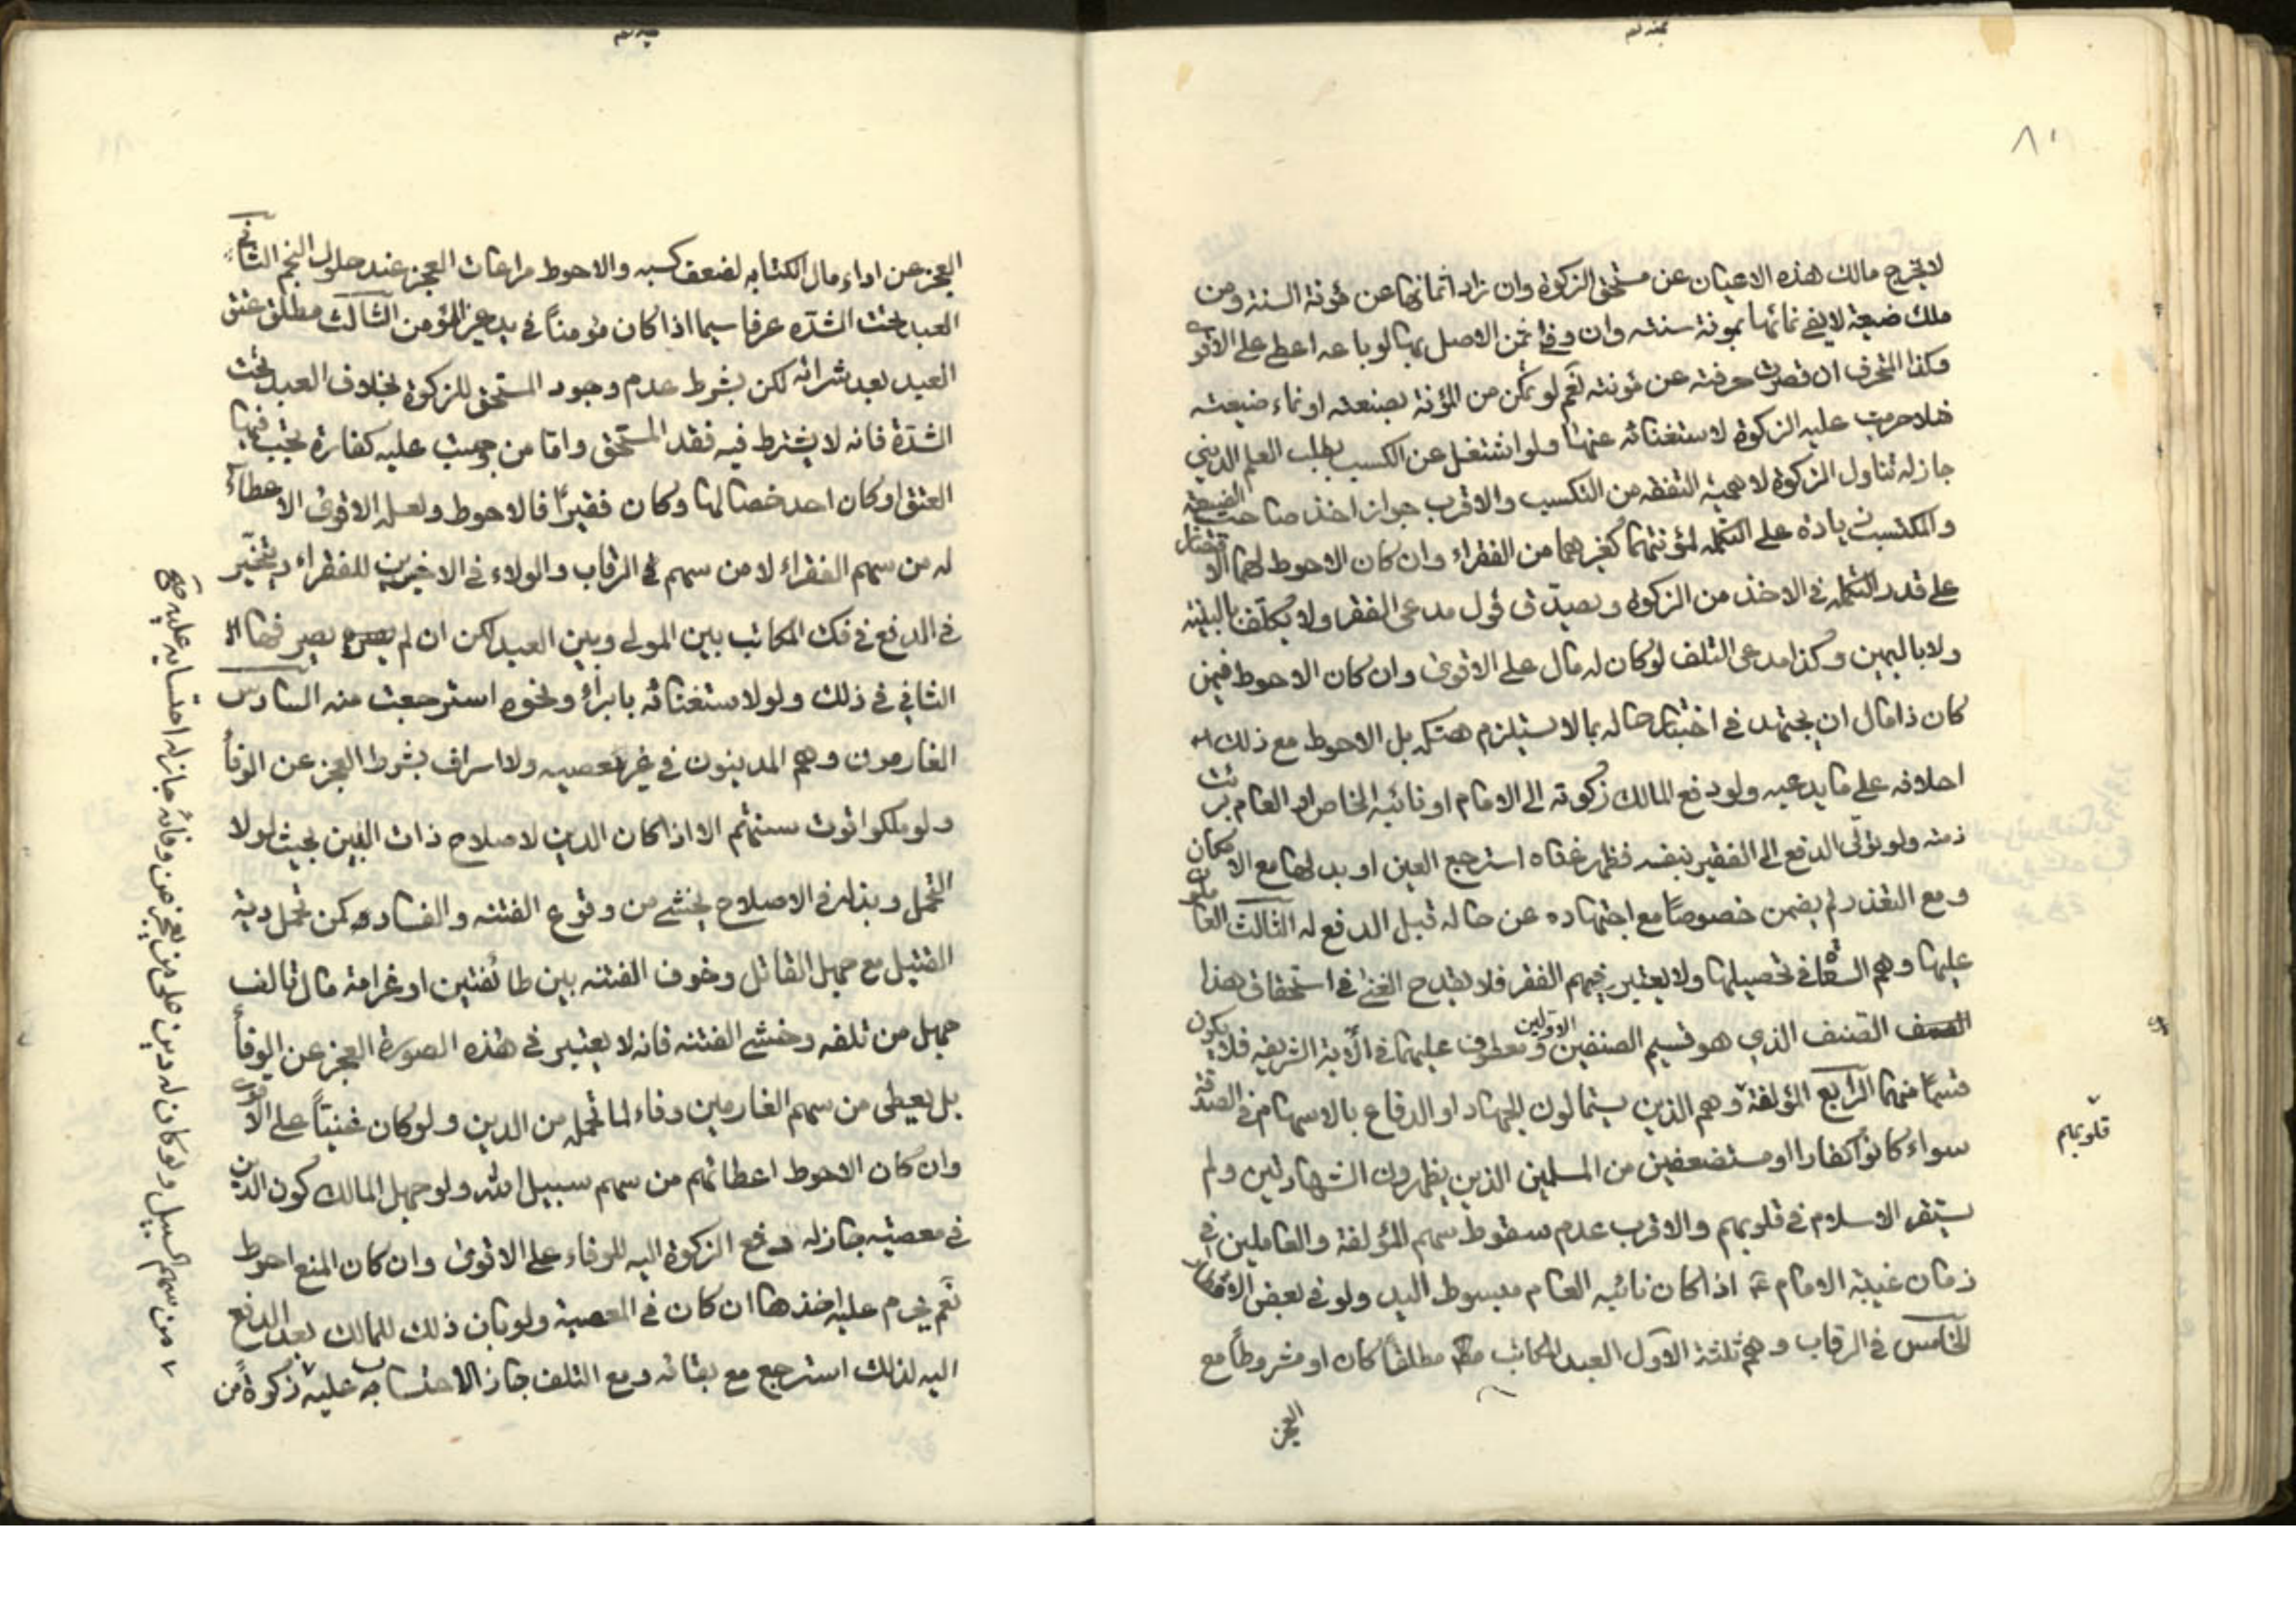 ٨٠
لا يخرج مالك هذه الاعيان عن مستحق الزكوة وان زاد اثمانها عن مؤنة السنة ومن
ملك ضيعة لا يفى نمائها بمونة سنته وان وفى ثمن الاصل بها لو باعه اعطى على الاقوى
وكذا المحترف ان قصرت حرفته عن مؤنته نعم لو تمكن من المؤنة بصنعته او نماء ضيعته
خلا حرمت عليه الزكوة لاستغنائه عنها ولو اشتغل عن الكسب بطلب العلم الدينى
جاز له تناول الزكوة لاهمية التفقه من التكسب والاقرب جواز اخذ صاحب الضيعة
والمكتسب زيادة على التكملة لمؤنتهما كغيرهما من الفقراء وان كان الاحوط لهما الاقتصار
على قدر التكملة فى الاخذ من الزكوة ويصدّق قول مدعى الفقر ولا يكلّف بالبينة
ولا باليمين وكذا مدعى التلف لو كان له مال على الاقوى وان كان الاحوط فيمن
كان ذا مال ان يجتهد فى اختبار حاله بما لا يستلزم هتكه بل الاحوط مع ذلك
احلافه على ما يدعيه ولو دفع المالك زكوته الى الامام او نائبه الخاص او العام برئت
ذمته ولو تولّى الدفع الى الفقير بنفسه فظهر غناه استرجع العين او بدلها مع الامكان
ومع التعذر لم يضمن خصوصاً مع اجتهاده عن حاله قبل الدفع له الثالث العاملون
عليها وهم السعاة فى تحصيلها ولا يعتبر فيهم الفقر فلا يقدح الغنى فى استحقاق هذا
الصنف الذى هو قسيم الصنفين الاوّلين ومعطوف عليهما فى الآية الشريفه فلا يكون
قسمًا منهما الرابع المؤلفة وهم الذين يستمالون للجهاد او الدفاع بالاسهام فى الصدقة
قلوبهم
سواء كانوا كفارا او مستضعفين من المسلمين الذين يظهرون الشهادتين ولم
يستقر الاسلام فى قلوبهم والاقرب عدم سقوط سهم المؤلفة والعاملين فى
زمان غيبة الامام ع اذا كان نائبه العام مبسوط اليد ولو فى بعض الاقطار
الخامس فى الرقاب وهم ثلثة الاول العبد المكاتب مطلقاً كان او مشروطاً مع
العجز
العجز عن اداء مال الكتابه لضعف كسبه والاحوط مراعات العجز عند حلول النجم الثانى
العبد تحت الشدّه عرفا سيما اذا كان مؤمناً فى يد غير المؤمن الثالث مطلق عتق
العبد بعد شرائه لكن بشرط عدم وجود المستحق للزكوة بخلاف العبد تحت
الشدّة فانه لا يشترط فيه فقد المستحق واما من وجبت عليه كفارة يجب فيها
العتق او كان احد خصالها وكان فقيراً فالاحوط ولعله الاقوى الاعطاء
له من سهم الفقراء لا من سهم فى الرقاب والولاء فى الاخيرين للفقراء ويتخيّر
فى الدفع فى فك المكاتب بين المولى وبين العبد لكن ان لم يصرفها
الثانى فى ذلك ولو لاستغنائه بابراء ونحوه استرجعت منه السادس
الغارمون وهم المدينون فى غير معصيه ولا اسراف بشرط العجز عن الوفاء
ولو ملكوا قوت سنتهم الا اذا كان الدين لاصلاح ذات البين بحيث لولا
التحمل وبذله فى الاصلاح يخشى من وقوع الفتنه والفساد كمن تحمل دية
القتيل مع جهل القاتل وخوف الفتنه بين طائفتين او غرامة مال تالف
جهل من تلفه وخشى الفتنه فانه لا يعتبر فى هذه الصورة العجز عن الوفاء
بل يعطى من سهم الغارمين وفاء لما تحمله من الدين ولو كان غنيّاً على الاقوى
وان كان الاحوط اعطائهم من سهم سبيل الله ولو جهل المالك كون الدين
فى معصيته جاز له دفع الزكوة اليه للوفاء على الاقوى وان كان المنع احوط
نعم يحرم عليه اخذها ان كان فى المعصية ولو بان ذلك للمالك بعد الدفع
اليه لذلك استرجع مع بقائه ومع التلف جاز الاحتساب به عليه زكوة من
من سهم السبيل ولو كان له دين على من يعجز عن وفائه جاز له احتسابه عليه صح